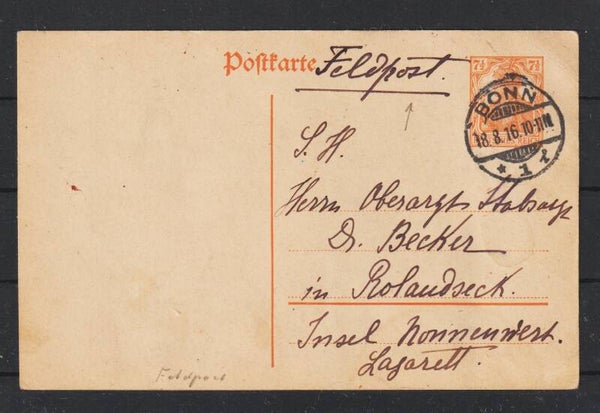 Postkarte Feldpost.
7½ 7½
BONN
18.8.16.10-11N
* 1 f
S. H.
Herrn Oberarzt Stabsarzt
Dr. Becker
in Rolandseck.
Insel Nonnenwert.
Lazarett.
Feldpost